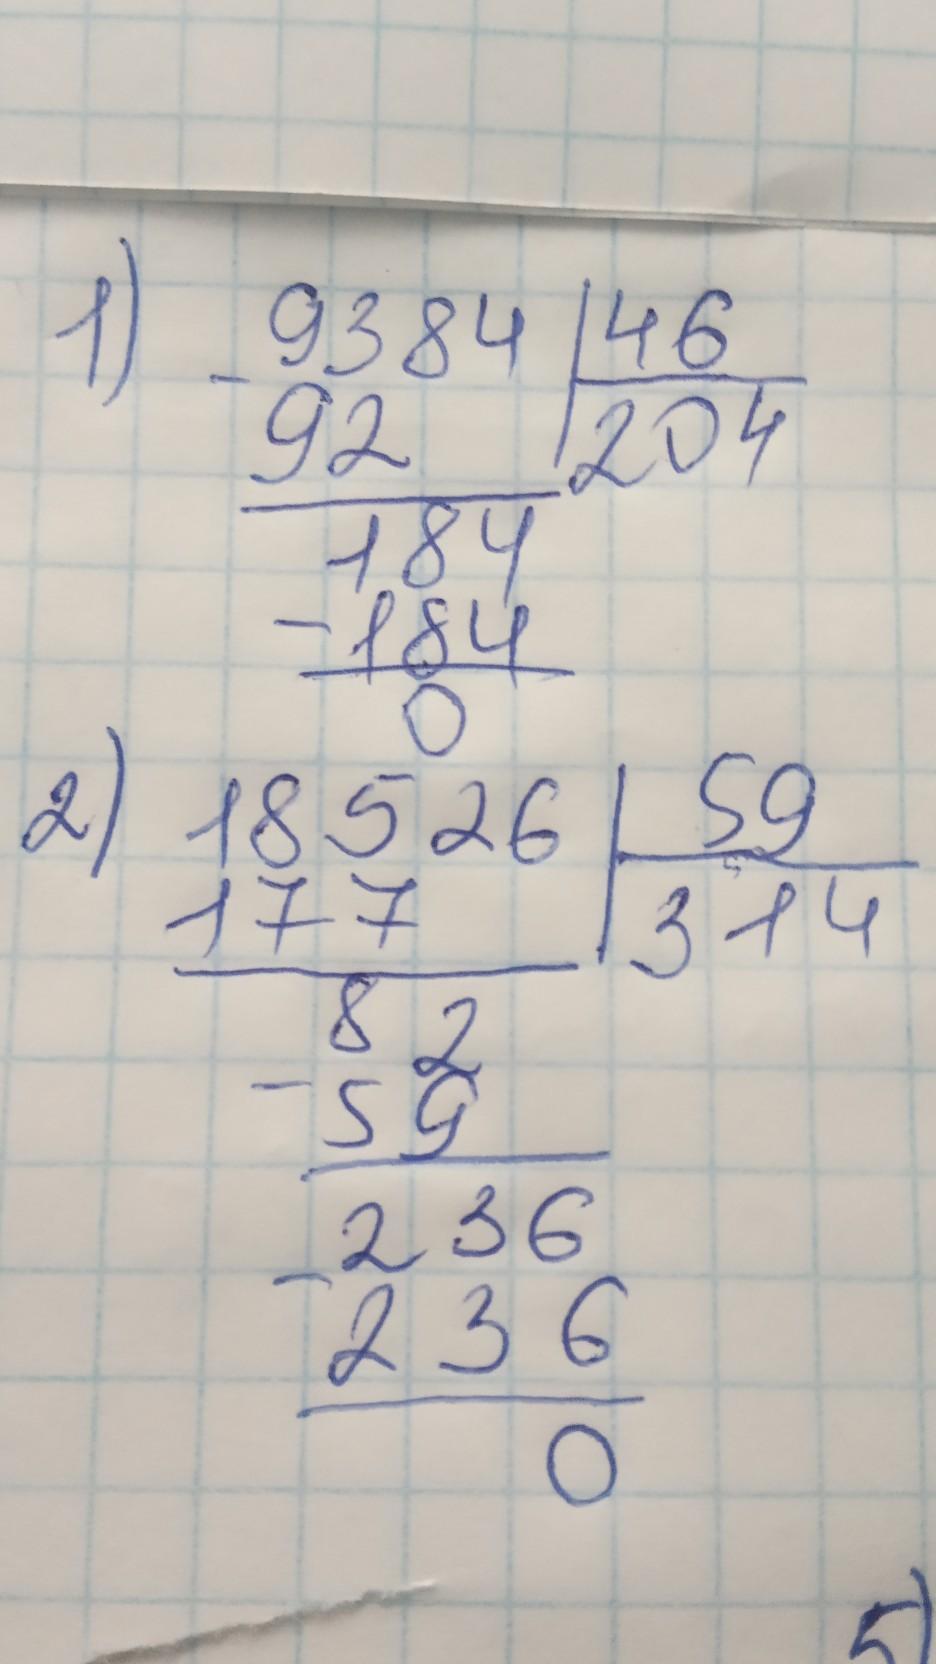 1) 9384 | 46
- 92 | 204
184
- 184
0
2) 18526 | 59
177 | 314
82
- 59
236
- 236
0
5)